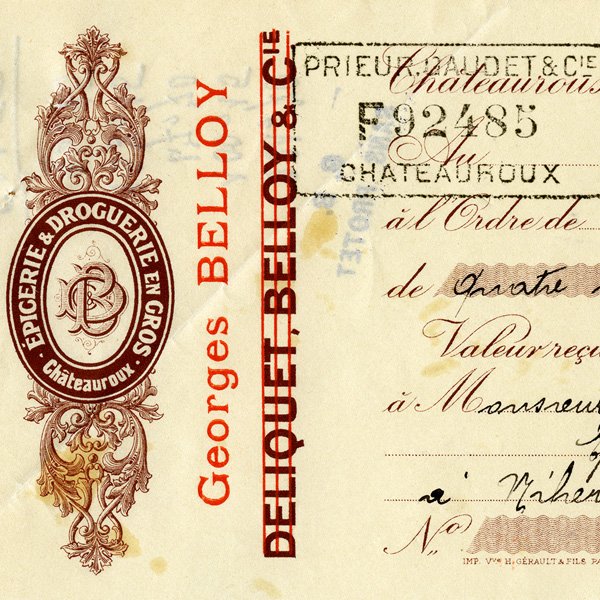 ÉPICERIE & DROGUERIE EN GROS
Châteauroux
Georges BELLOY
DELIQUET, BELLOY & CIE
PRIEUR, GAUDET & CIE
F 92485
CHATEAUROUX
Châteauroux
Au
à l'Ordre de
de quatre
Valeur reçu
à Monsieur
à
No
IMP. Vve H. GÉRAULT & FILS